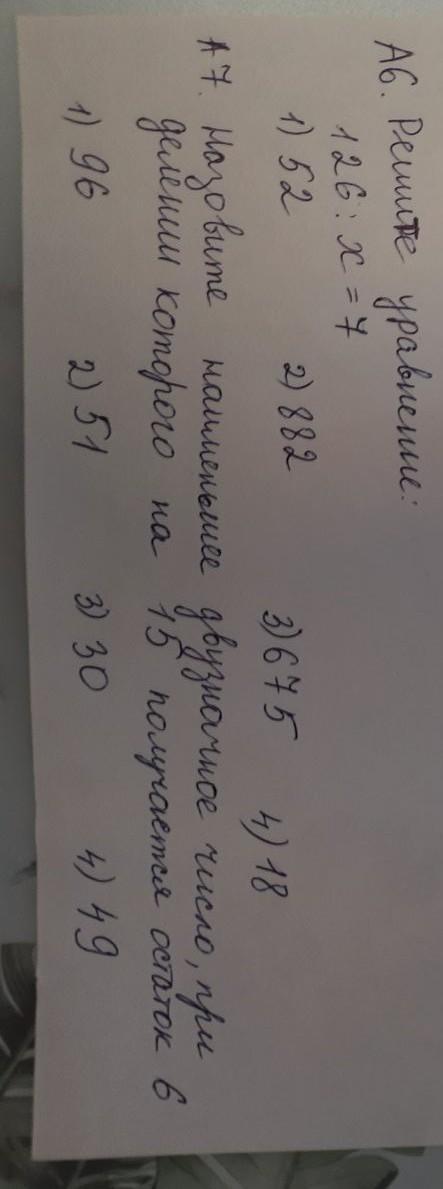 А6. Решите уравнение:
126 : x = 7
1) 52 2) 882 3) 675 4) 18
А7. Назовите наименьшее двузначное число, при
делении которого на 15 получается остаток 6
1) 96 2) 51 3) 30 4) 49